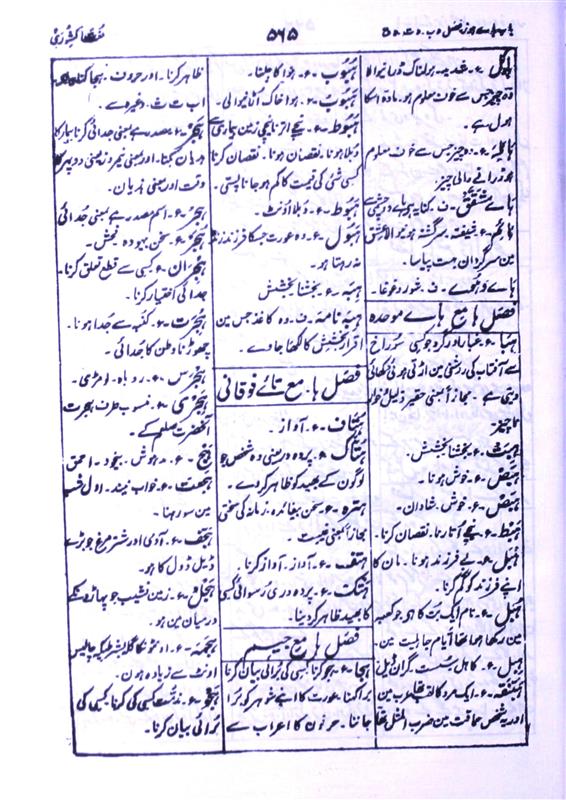 باب ہاے ہوز فصل ہ ب۔ ہ ت۔ ہ ج
۵۶۵
لغات کشوری
ہائل۔ ع۔ ہولناک ڈرانیوالا
وہ چیز جس سے خوف معلوم ہو۔ مادہ اسکا
ہول ہے۔
ہائلہ۔ ع۔ وہ چیز جس سے خوف معلوم
ہو ڈرانے والی چیز
ہائم۔ ع۔ شیفتہ۔ سرگشتہ
مین سرگردان بہت پیاسا۔
ہاے وہوے۔ ف۔ شور و غوغا۔
فصل ہا مع باے موحدہ
ہبا۔ غبار اور گرد جو کسی سوراخ
سے آفتاب کی روشنی مین اڑتی ہوئی دکھائی
دیتی ہے۔ مجازاً بمعنی حقیر ذلیل خوار
ناچیز
ہبت۔ ع۔ بخشنا بخشش۔
ہبص۔ ع۔ خوش ہونا۔
ہبص۔ ع۔ خوش۔ شادان۔
ہبط۔ ع۔ نیچے اتارنا۔ نقصان کرنا۔
ہبل۔ ع۔ بے فرزند ہونا۔ مان کا
اپنے فرزند کو گم کرنا۔
ہبل۔ ع۔ نام ایک بت کا جو کعبہ
مین رکھا ہوا تھا ایام جاہلیت مین۔
ہبل۔ ع۔ کاہل سست گران ڈیل
ہبنقہ۔ ع۔ ایک مرد کا لقب تھا عرب مین
اور یہ شخص حماقت مین ضرب المثل تھا
ہبوب۔ ع۔ ہوا کا چلنا۔
ہبوب۔ ع۔ ہوا خاک اڑانیوالی۔
ہبوط۔ ع۔ نیچے اترنا نیچی زمین بیماری سے
دبلا ہونا۔ نقصان ہونا۔ نقصان کرنا
کسی شئی کی قیمت کا کم ہو جانا پستی۔
ہبوط۔ ع۔ دبلا اونٹ۔
ہبول۔ ع۔ وہ عورت جسکا فرزند زندہ
نہ رہتا ہو۔
ہبہ۔ ع۔ بخشنا بخشش
ہبہ نامہ۔ ف۔ وہ کاغذ جس مین
اقرار بخشش کا لکھا جاوے۔
فصل ہا۔ مع تائے فوقانی
ہتاف۔ ع۔ آواز۔
ہتاک۔ ع۔ پردہ در یعنی وہ شخص جو
لوگون کے بھید کو ظاہر کر دے۔
ہترہ۔ ع۔ سخن بیفائدہ۔ زمانہ کی سختی
مجازاً بمعنی غیبت۔
ہتف۔ ع۔ آواز۔ آواز کرنا۔
ہتک۔ ع۔ پردہ دری رسوائی کسی
کا بھید ظاہر کر دینا۔
فصل ہا مع جیم
ہجا۔ ع۔ ہجو کرنا۔ کسی کی برائی بیان کرنا
برا کہنا۔ عورت کا اپنے شوہر کو برا
جاننا۔ حرفون کا اعراب سے
ظاہر کرنا۔ اور حروف ہجا
اب ت ث۔ وغیرہ ے۔
ہجر۔ ع۔ مصدر ہے بمعنی جدائی کرنا بیمار کا
ہذیان بکنا۔ اور بمعنی نیمروز یعنی دوپہر کا
وقت اور بمعنی ہذیان۔
ہجر۔ ع۔ اسم مصدر ہے بمعنی جدائی
ہجر۔ ع۔ سخن بیہودہ۔ فحش۔
ہجران۔ ع۔ کسی سے قطع تعلق کرنا۔
جدائی اختیار کرنا۔
ہجرت۔ ع۔ کنبہ سے جدا ہونا۔
چھوڑنا وطن کا جدائی۔
ہجرس۔ ع۔ روباہ۔ لومڑی۔
ہجری۔ ع۔ منسوب طرف ہجرت
آنحضرت صلعم کے۔
ہجع۔ ع۔ مدہوش۔ بیخود۔ احمق
ہجعت۔ ع۔ خواب نیند۔ اول شب
مین سو رہنا۔
ہجف۔ ع۔ آدمی اور شتر مرغ جو بڑے
ڈیل ڈول کا ہو۔
ہجل۔ ع۔ زمین نشیب جو پہاڑونکے
درمیان مین ہو۔
ہجمہ۔ ع۔ اونٹونکا گلہ بشرطیکہ چالیس
اونٹ سے زیادہ ہون۔
ہجو۔ ع۔ مذمت کسی کی کرنا۔ کسی کی
برائی بیان کرنا۔